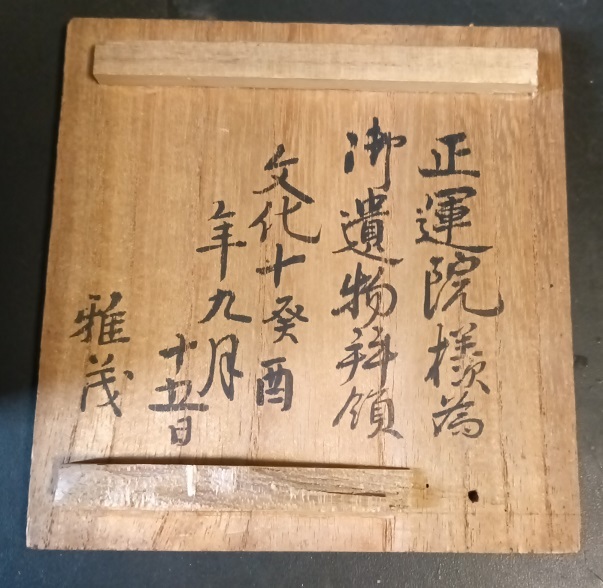 正運院様為
御遺物拝領
文化十癸酉
年九月
十五日
雅茂